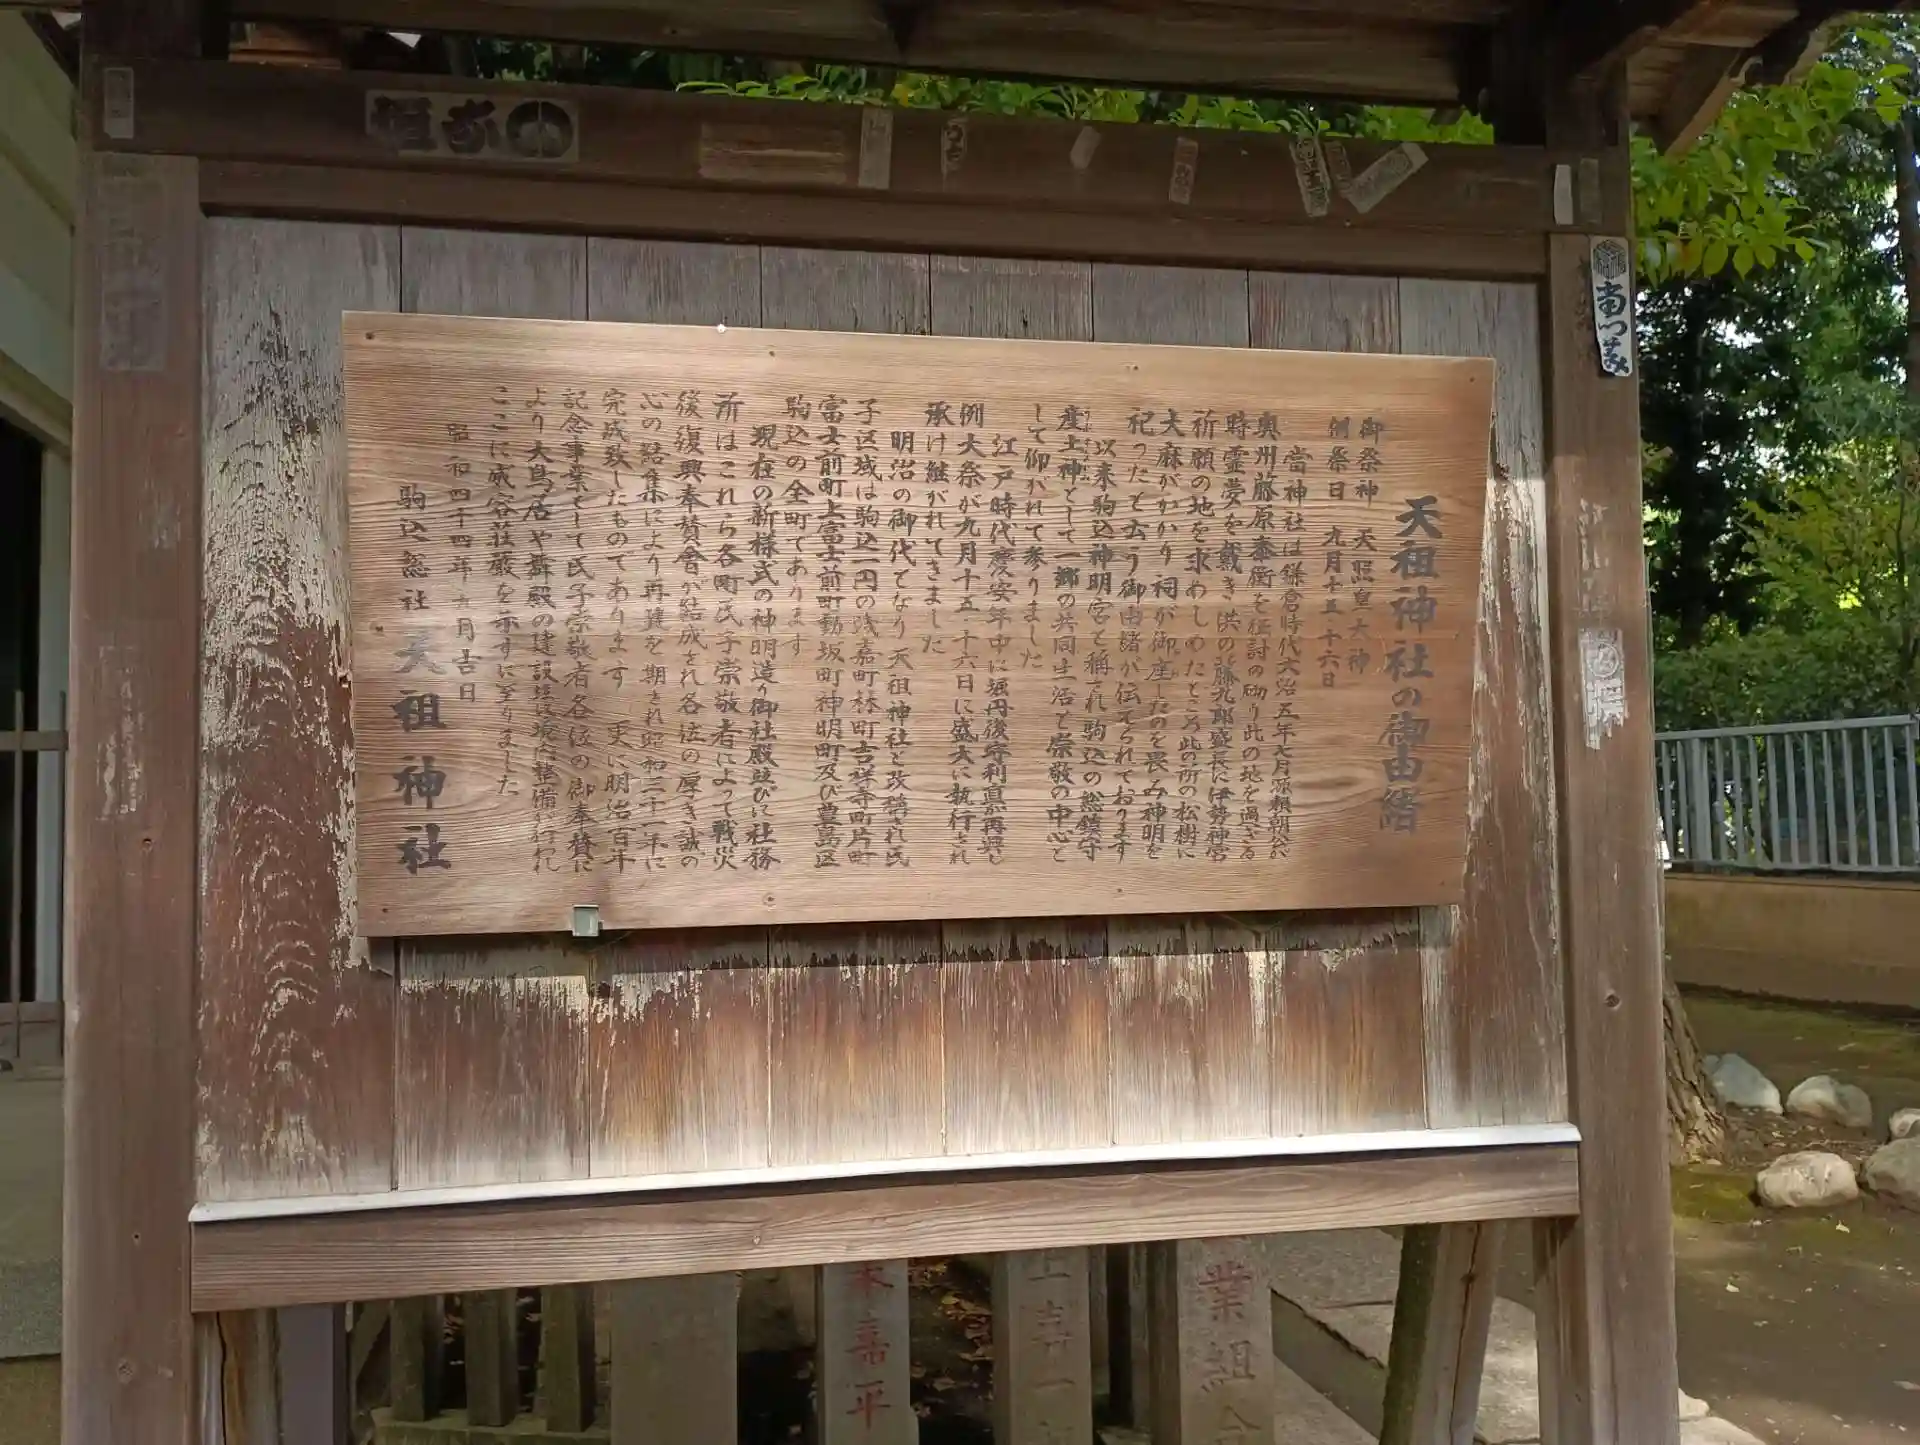 天祖神社の御由緒
御祭神 天照皇大神
例祭日 九月十五、十六日
當神社は鎌倉時代文治五年七月源頼朝公が
奥州藤原泰衡を征討の砌り此の地を過ぎる
時霊夢を戴き供の藤九郎盛長に伊勢神宮
祈願の地を求めしめたところ此の所の松樹に
大麻がかかり祠が御座したのを畏み神明を
祀ったと云う御由緒が伝えられております
以来駒込神明宮と称され駒込の総鎮守
産土神として一郷の共同生活と崇敬の中心と
して仰がれて参りました
江戸時代慶安年中に堀丹後守利直再興し
例大祭が九月十五、十六日に盛大に執行され
承け継がれてきました
明治の御代となり天祖神社と改称され氏
子区域は駒込一円の浅嘉町林町吉祥寺町片町
富士前町上富士前町動坂町神明町及び豊島区
駒込の全町であります
現在の新様式の神明造り御社殿並びに社務
所はこれら各町氏子崇敬者によって戦災
後復興奉賛會が結成され各位の厚き誠の
心の結集により再建を期され昭和三十一年に
完成致したものであります 更に明治百年
記念事業として氏子崇敬者各位の御奉賛に
より大鳥居や舞殿の建設並境内整備が行われ
ここに威容荘厳を示すに至りました
昭和四十四年九月吉日
駒込総社 天祖神社
嘉平
業組合